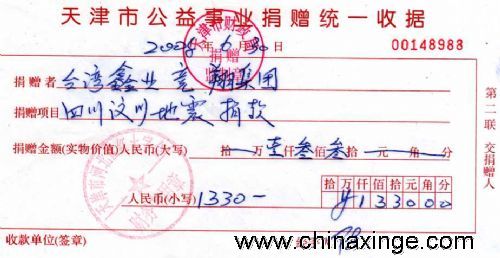 天津市公益事业捐赠统一收据
2008年6月30日
00148988
捐赠者 台湾鑫业竞翔集团
捐赠项目 四川汶川地震捐款
捐赠金额(实物价值)人民币(大写) 拾万壹仟叁佰叁拾元角分
拾万千百十元角分
人民币(小写) 1330- ¥133000
收款单位(签章)
第二联 交捐赠人
www.chinaxinge.com